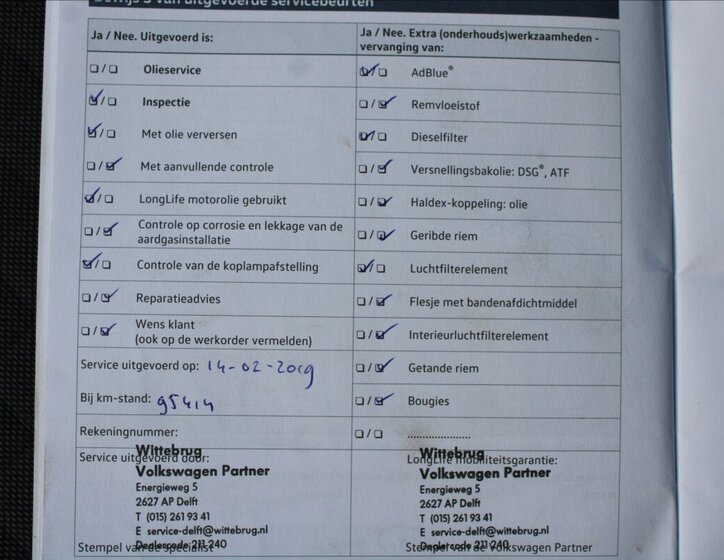 Bewijs 3 van uitgevoerde servicebeurten
Ja / Nee. Uitgevoerd is:
Olieservice
Inspectie
Met olie verversen
Met aanvullende controle
LongLife motorolie gebruikt
Controle op corrosie en lekkage van de
aardgasinstallatie
Controle van de koplampafstelling
Reparatieadvies
Wens klant
(ook op de werkorder vermelden)
Service uitgevoerd op: 14-02-2019
Bij km-stand: 95414
Rekeningnummer:
Service uitgevoerd door:
Wittebrug
Volkswagen Partner
Energieweg 5
2627 AP Delft
T (015) 261 93 41
E service-delft@wittebrug.nl
Dealercode 211 240
Stempel van de specialist
Ja / Nee. Extra (onderhouds)werkzaamheden -
vervanging van:
AdBlue®
Remvloeistof
Dieselfilter
Versnellingsbakolie: DSG®, ATF
Haldex-koppeling: olie
Geribde riem
Luchtfilterelement
Flesje met bandenafdichtmiddel
Interieurluchtfilterelement
Getande riem
Bougies
.....................
LongLife mobiliteitsgarantie:
Wittebrug
Volkswagen Partner
Energieweg 5
2627 AP Delft
T (015) 261 93 41
E service-delft@wittebrug.nl
Dealercode 211 240
Stempel van de Volkswagen Partner